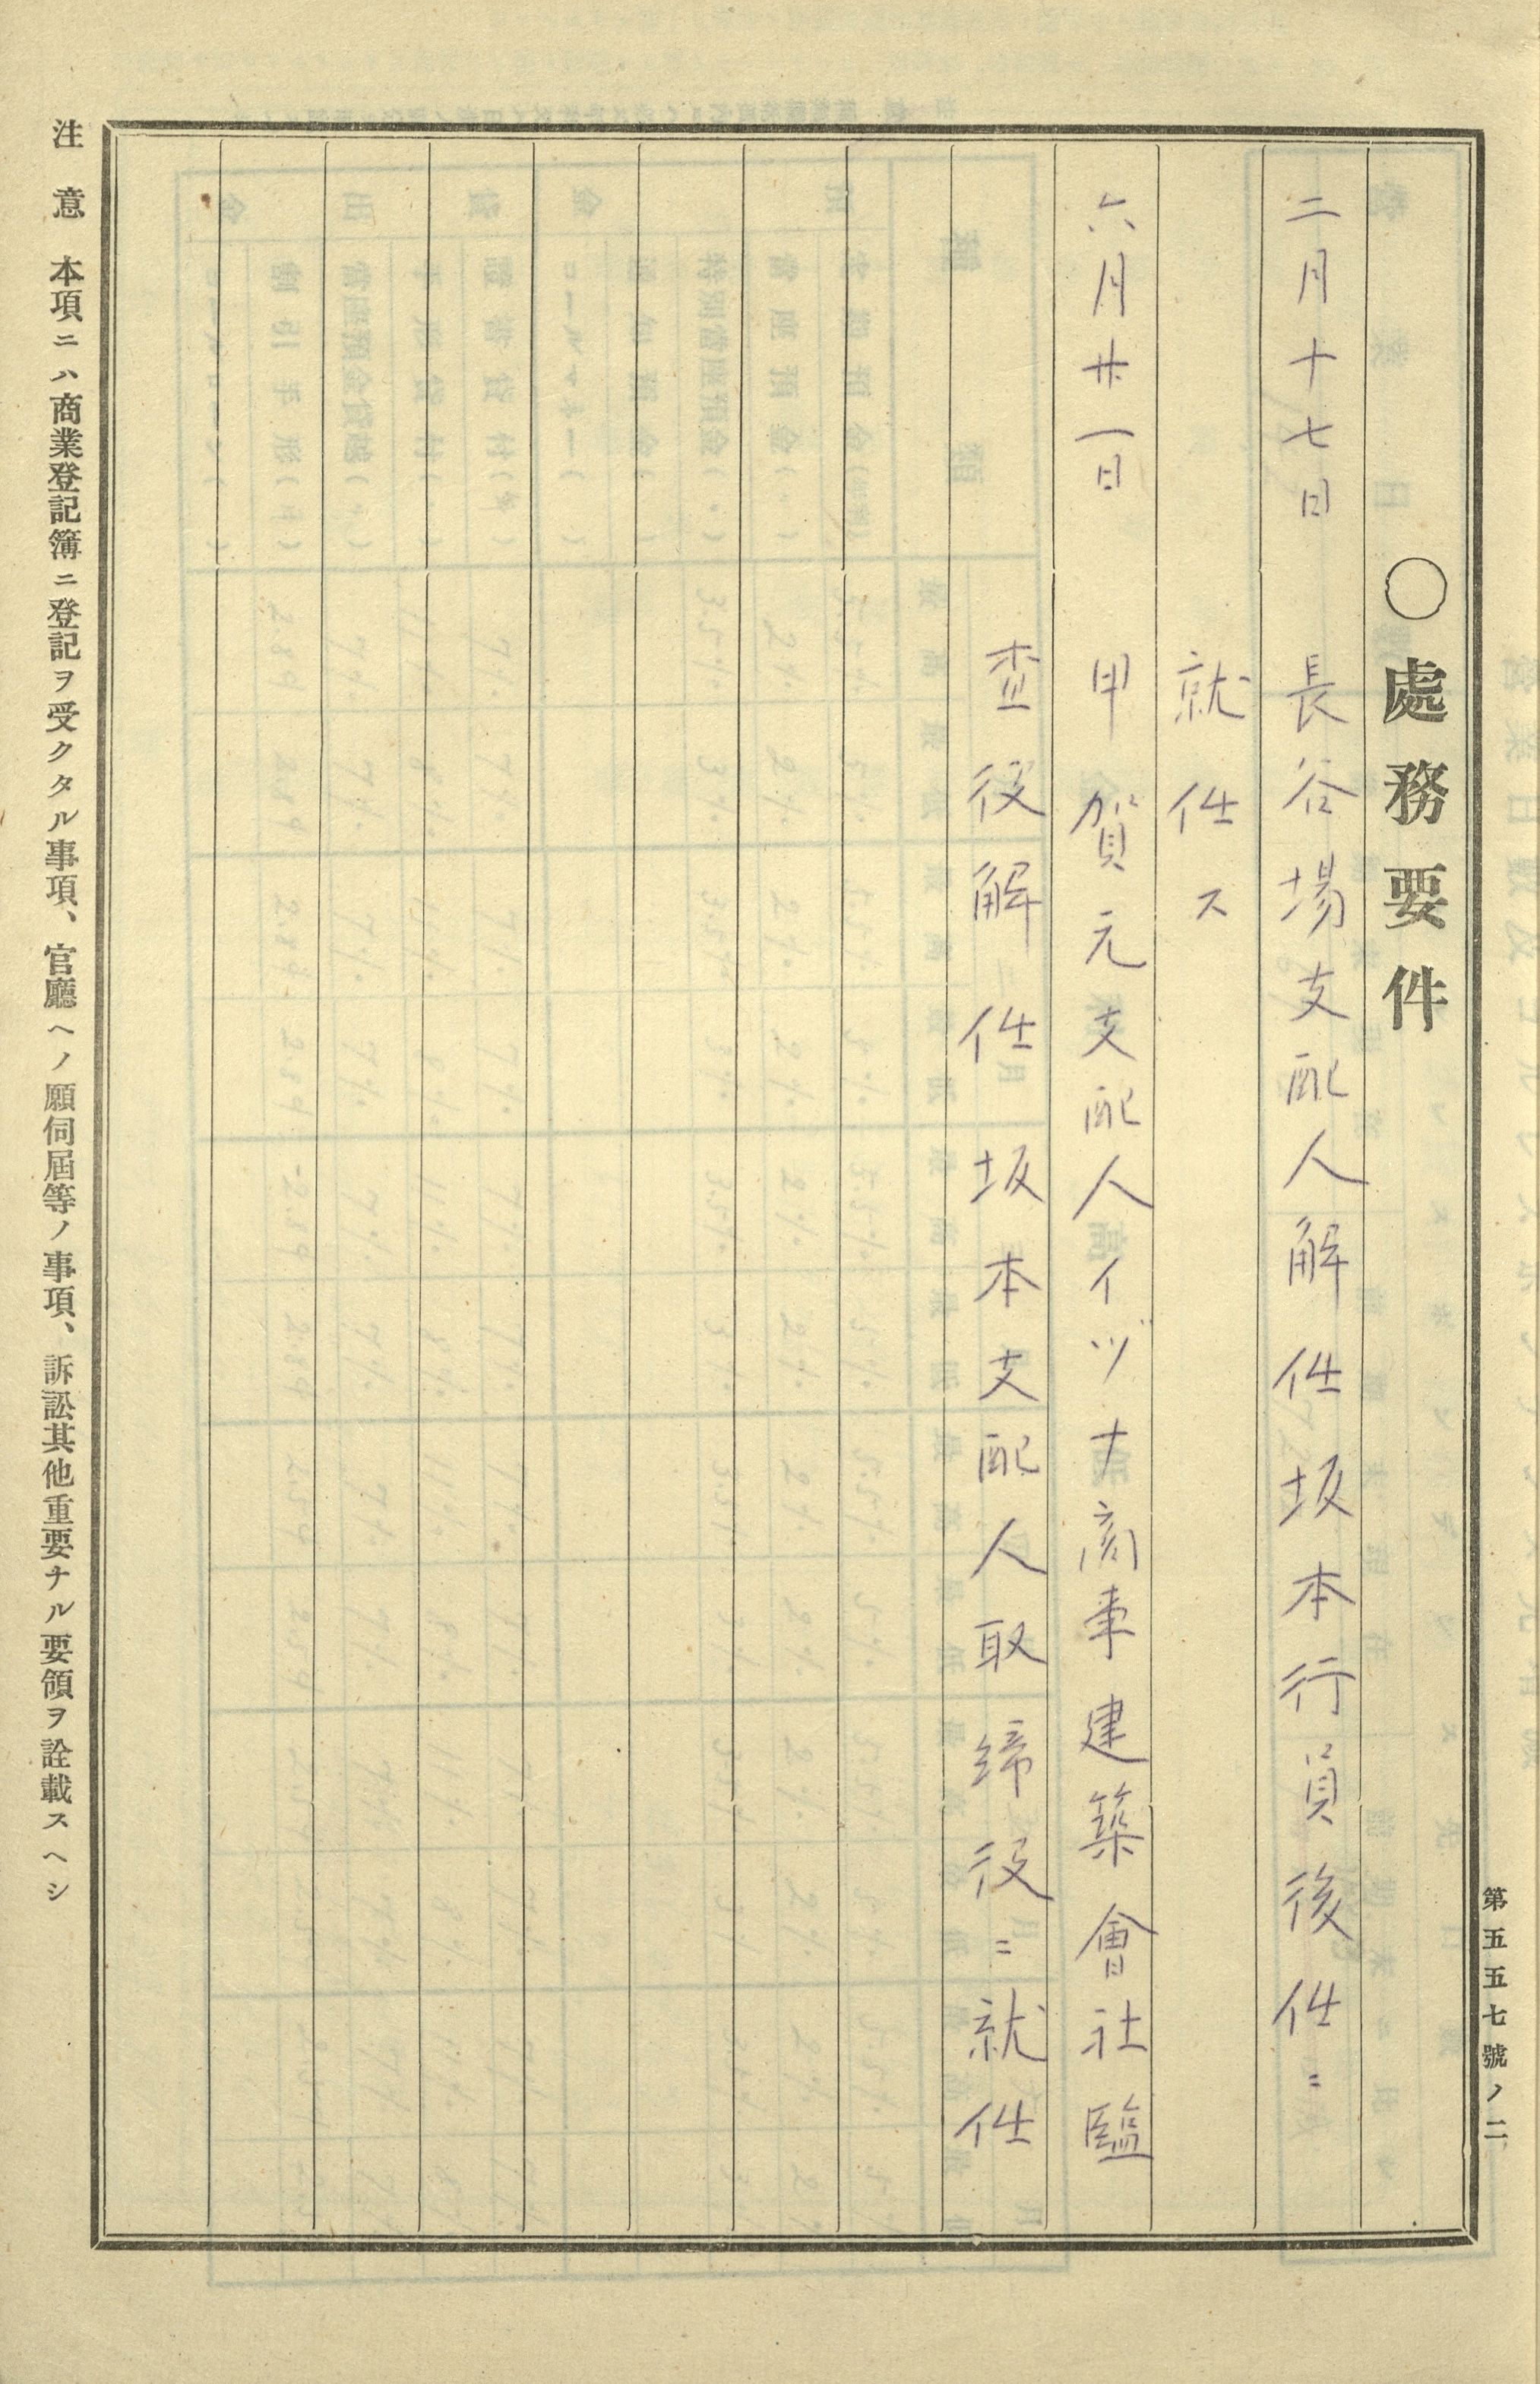 第五五七號ノ二
○處務要件
二月十七日 長谷場支配人解任坂本行員後任ニ
就任ス
六月廿一日 甲賀元支配人イヅナ商事建築會社監
査役解任坂本支配人取締役ニ就任
注意 本項ニハ商業登記簿ニ登記ヲ受クタル事項、官廳ヘノ願伺屆等ノ事項、訴訟其他重要ナル要領ヲ詮載スヘシ